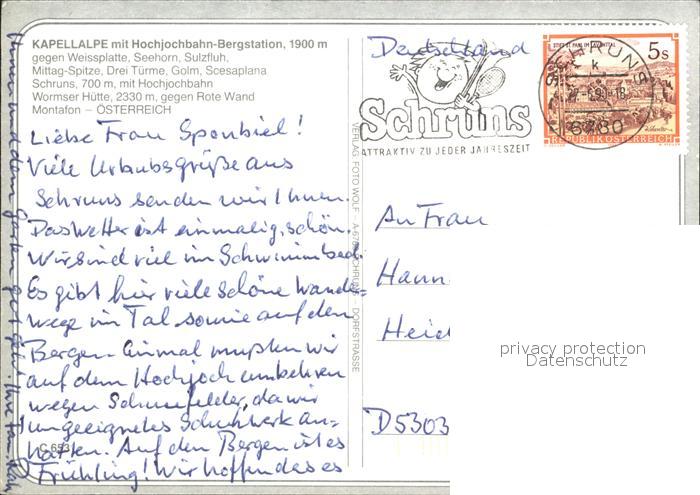 KAPELLALPE mit Hochjochbahn-Bergstation, 1900 m
gegen Weissplatte, Seehorn, Sulzfluh,
Mittag-Spitze, Drei Türme, Golm, Scesaplana
Schruns, 700 m, mit Hochjochbahn
Wormser Hütte, 2330 m, gegen Rote Wand
Montafon – ÖSTERREICH
Liebe Frau Sponbiel!
Viele Urlaubsgrüße aus
Schruns senden wir Ihnen.
Das Wetter ist einmalig schön.
Wir sind viel im Schwimmbad.
Es gibt hier viele schöne Wander-
wege im Tal sowie auf den
Bergen. Einmal mußten wir
auf dem Hochjoch umkehren
wegen Schneefelder, da wir
ungeeignetes Schuhwerk an-
hatten. Auf den Bergen ist es
Frühling! Wir hoffen das es
Ihnen und dem Garten gut geht. Ihre Fam.
C 653
VERLAG FOTO WOLF – A-6780 SCHRUNS – DORFSTRASSE
Deutschland
Schruns
ATTRAKTIV ZU JEDER JAHRESZEIT
SCHRUNS
k
6780
STIFT ST. PAUL IM LAVANTTAL
5 S
REPUBLIK ÖSTERREICH
An Frau
Hann
Heid
D5303
privacy protection
Datenschutz